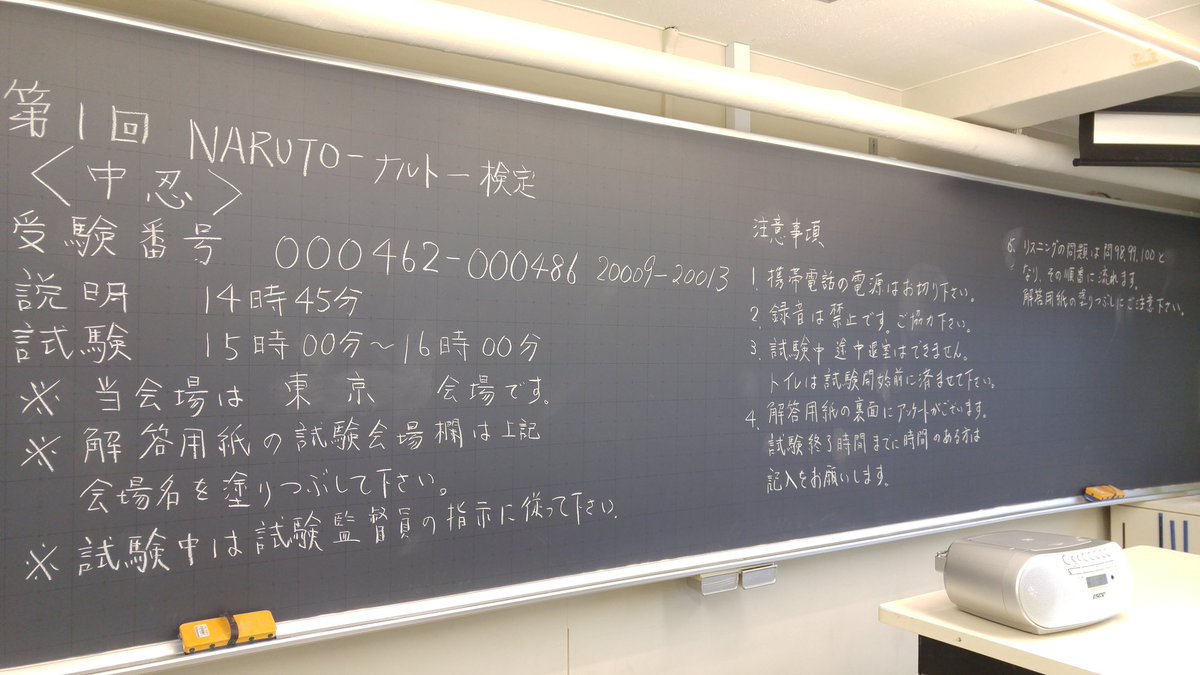 第1回 NARUTO-ナルト-検定
〈中忍〉
受験番号 000462-000486 20009-20013
説明 14時45分
試験 15時00分～16時00分
※ 当会場は 東京 会場です。
※ 解答用紙の試験会場欄は上記
会場名を塗りつぶして下さい。
※ 試験中は試験監督員の指示に従って下さい.
注意事項
1. 携帯電話の電源はお切り下さい。
2. 録音は禁止です。ご協力下さい。
3. 試験中途中退室はできません。
トイレは試験開始前に済ませて下さい。
4. 解答用紙の裏面にアンケートがございます。
試験終了時間までに時間のある方は
記入をお願いします。
5. リスニングの問題は問98,99,100と
なり、その順番に流れます。
解答用紙の塗りつぶしにご注意下さい。